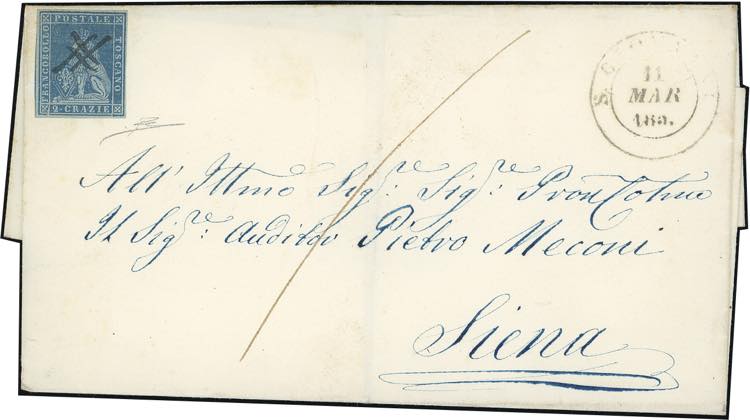 FRANCOBOLLO POSTALE TOSCANO
2 CRAZIE
11
MAR
185.
All' Illmo Sig:re Sig:re Pron Colmo
Il Sig:re Auditor Pietro Meconi
Siena